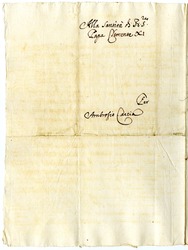 Alla Santità di N.
Papa Clemente XI
Per
Ambrosio